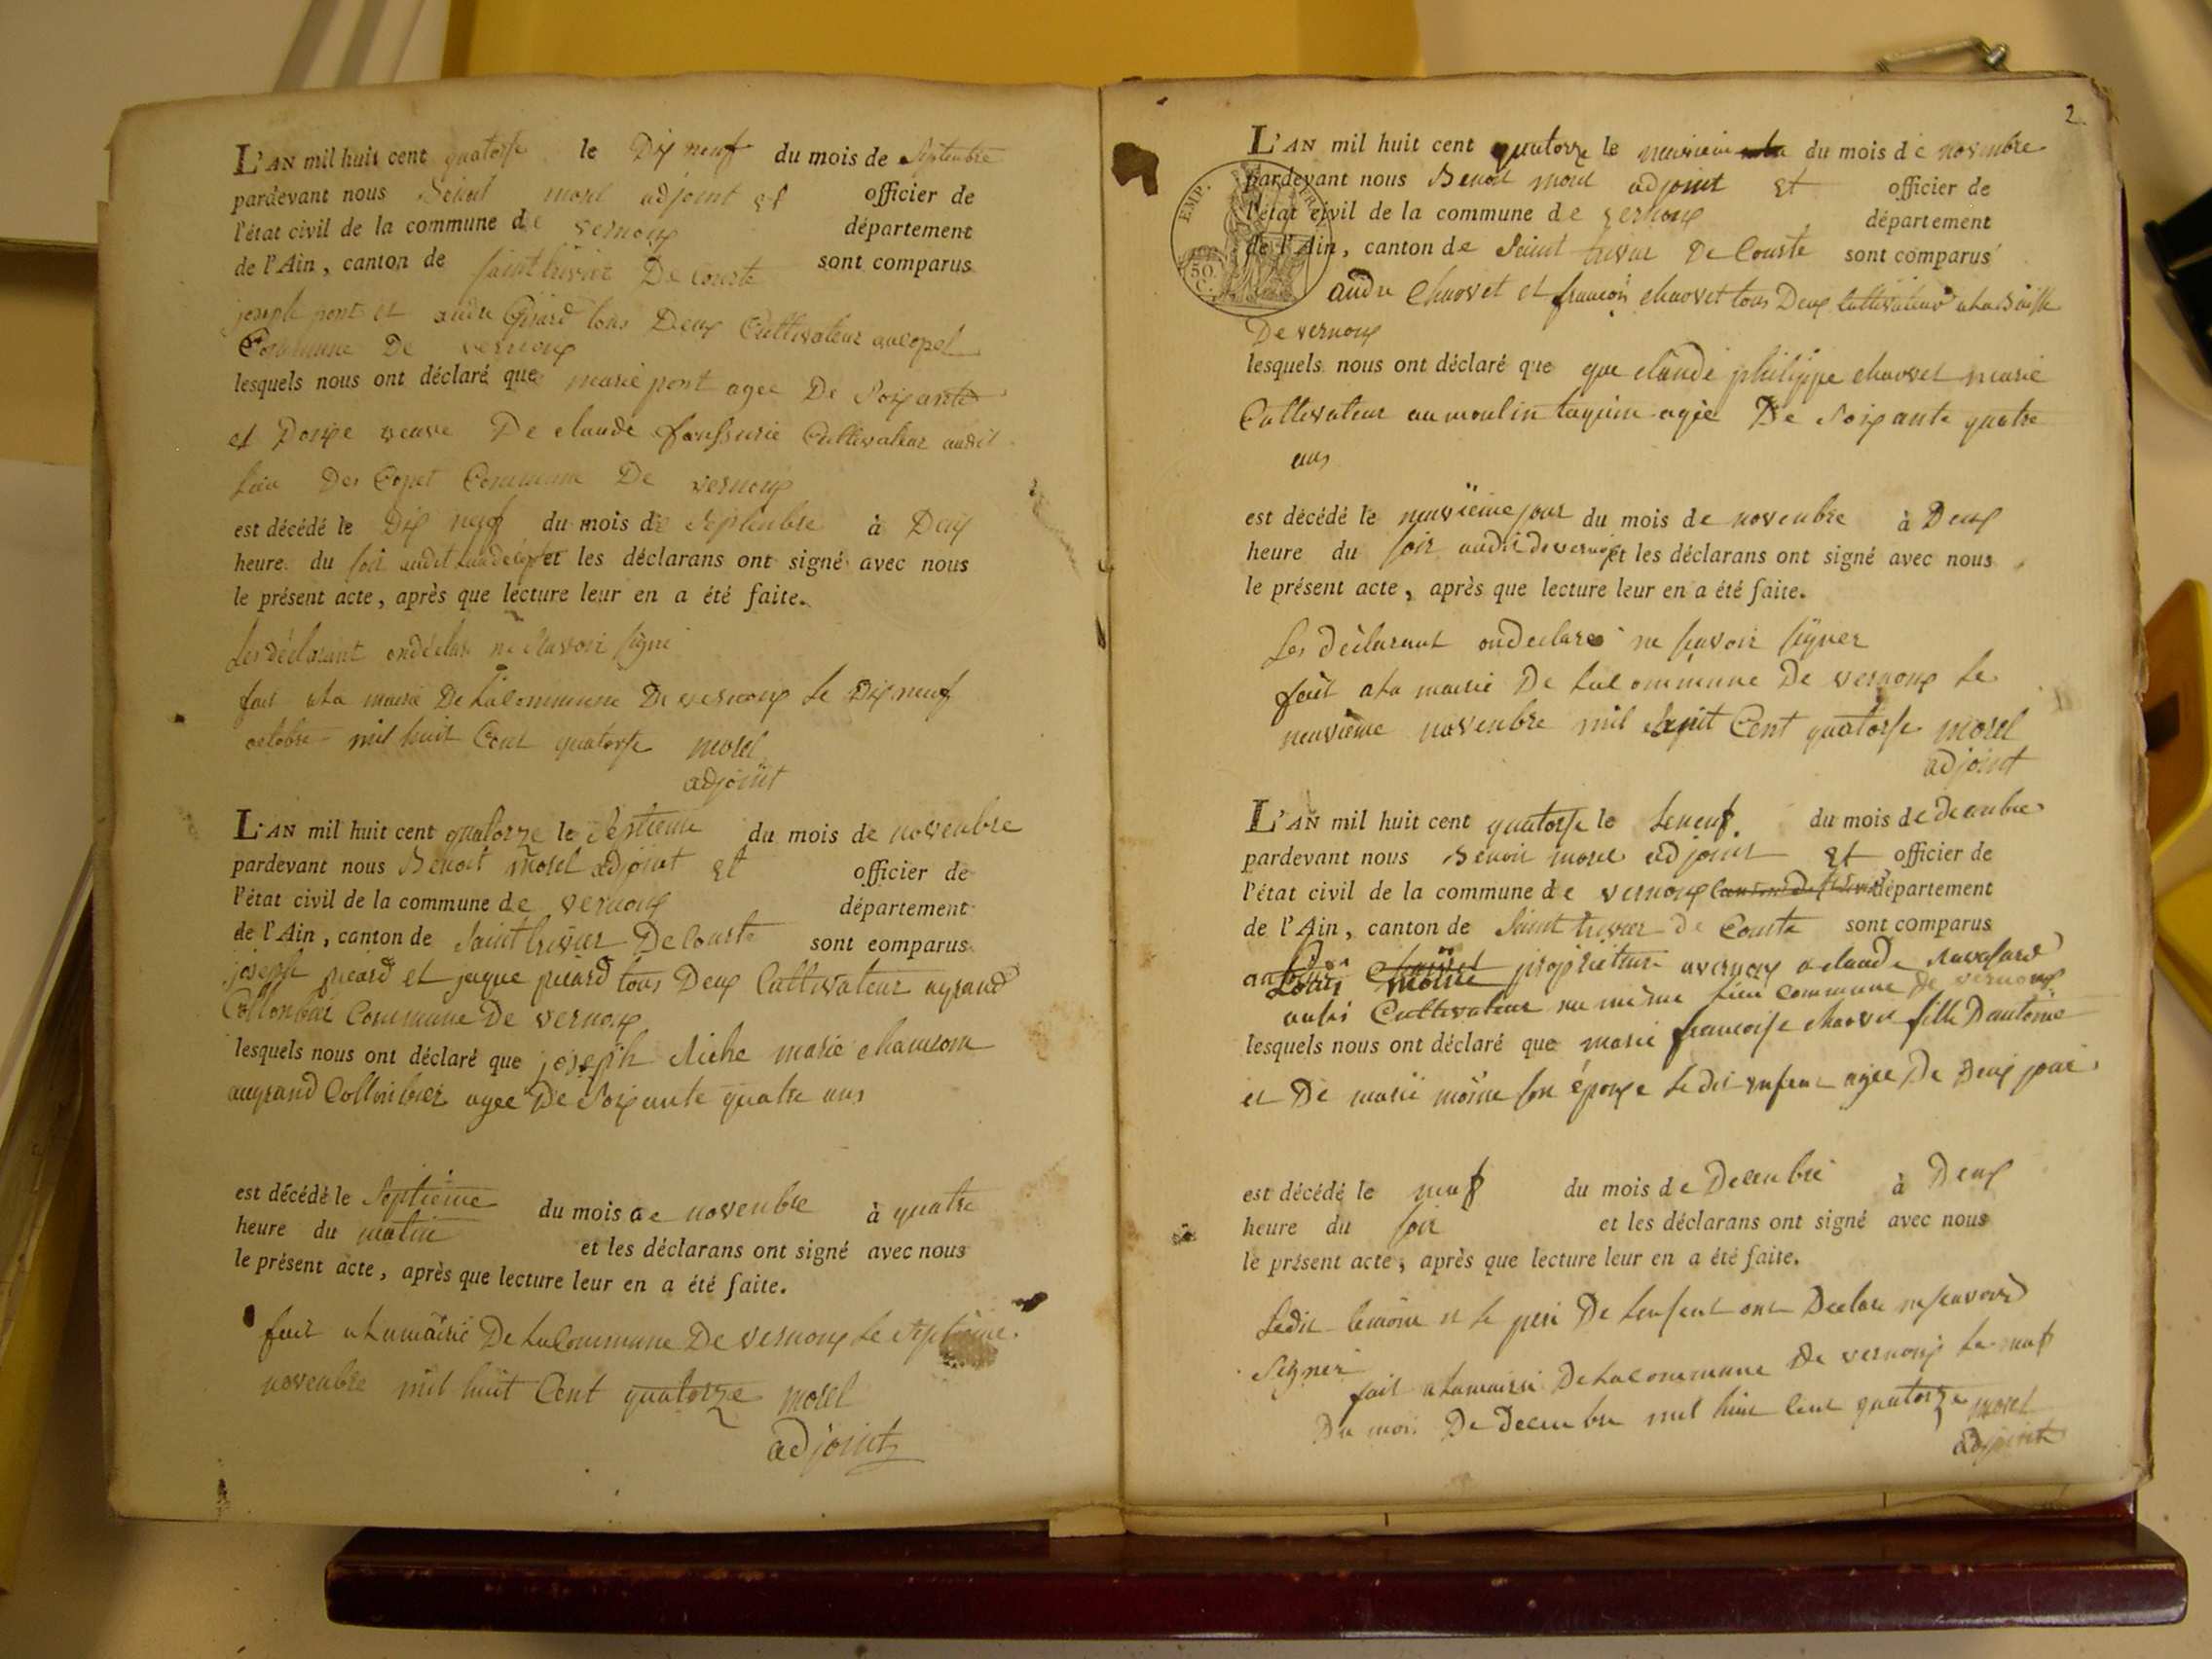 L'AN mil huit cent quatorse le Dix neuf du mois de Septembre
pardevant nous Benoit morel adjoint et officier de
l'état civil de la commune de vernoux département
de l'Ain, canton de Saint trivier De Courte sont comparus
joseph pont et andre Guiard tous Deux Cultivateur aucopel
Commune De vernoux
lesquels nous ont déclaré que marie pont agee De Soixante
et Douse veuve De claude Cultivateur audit
lieu Des Copet Commune De vernoux
est décédé le Dix neuf du mois de Septembre à Deux
heure du soir audit et les déclarans ont signé avec nous
le présent acte, après que lecture leur en a été faite.
Les déclarant ondéclare ne Savoir signé
fait ala mairie De laCommune De vernoux Le Dix neuf
octobre mil huit Cent quatorse morel
adjoint
L'AN mil huit cent quatorze le Septieme du mois de novenbre
pardevant nous Benoit morel adjoint et officier de
l'état civil de la commune de vernoux département
de l'Ain, canton de Saint trivier De Courte sont comparus
joseph picard et jaque picard tous Deux Cultivateur augrand
Collonbier Commune De vernoux
lesquels nous ont déclaré que joseph marie
augrand Collonbier agee De Soixante quatre ans
est décédé le Septieme du mois de novenbre à quatre
heure du matin et les déclarans ont signé avec nous
le présent acte, après que lecture leur en a été faite.
fait alamairie De laCommune De vernoux Le Septieme
novenbre mil huit Cent quatorze morel
adjoint
2
EMP. FR
50 C.
L'AN mil huit cent quatorze le neuvieme du mois de novenbre
pardevant nous Benoit morel adjoint et officier de
l'état civil de la commune de vernoux département
de l'Ain, canton de Saint trivier De Courte sont comparus
andre Chaovet et françois chaovet tous Deux Cultivateur
De vernoux
lesquels nous ont déclaré que que claude philippe chaovet marie
Cultivateur au moulin agée De Soixante quatre
ans
est décédé le neuvieme jour du mois de novenbre à Deux
heure du soir audit de vernoux et les déclarans ont signé avec nous
le présent acte, après que lecture leur en a été faite.
Les déclarant ondeclare ne savoir signer
fait ala mairie De laCommune De vernoux Le
neuvieme novenbre mil Cent quatorse morel
adjoint
L'AN mil huit cent quatorse le Le neuf du mois de Decenbre
pardevant nous Benoit morel adjoint et officier de
l'état civil de la commune de vernoux département
de l'Ain, canton de Saint trivier De Courte sont comparus
Louis moine propriétaire avernoux claude
Cultivateur au même lieu commune de vernoux
lesquels nous ont déclaré que marie francoise chaovet fille Dantoine
et De marie moine son épouse Le dit enfant agee De Deux jour
est décédé le neuf du mois de Decenbre à Deux
heure du soir et les déclarans ont signé avec nous
le présent acte, après que lecture leur en a été faite.
Ledit lemoine et le pere De lenfent ont Declare
Signer
fait alamairie De laCommune De vernoux Le neuf
Du mois De Decenbre mil huit Cent quatorze morel
adjoint